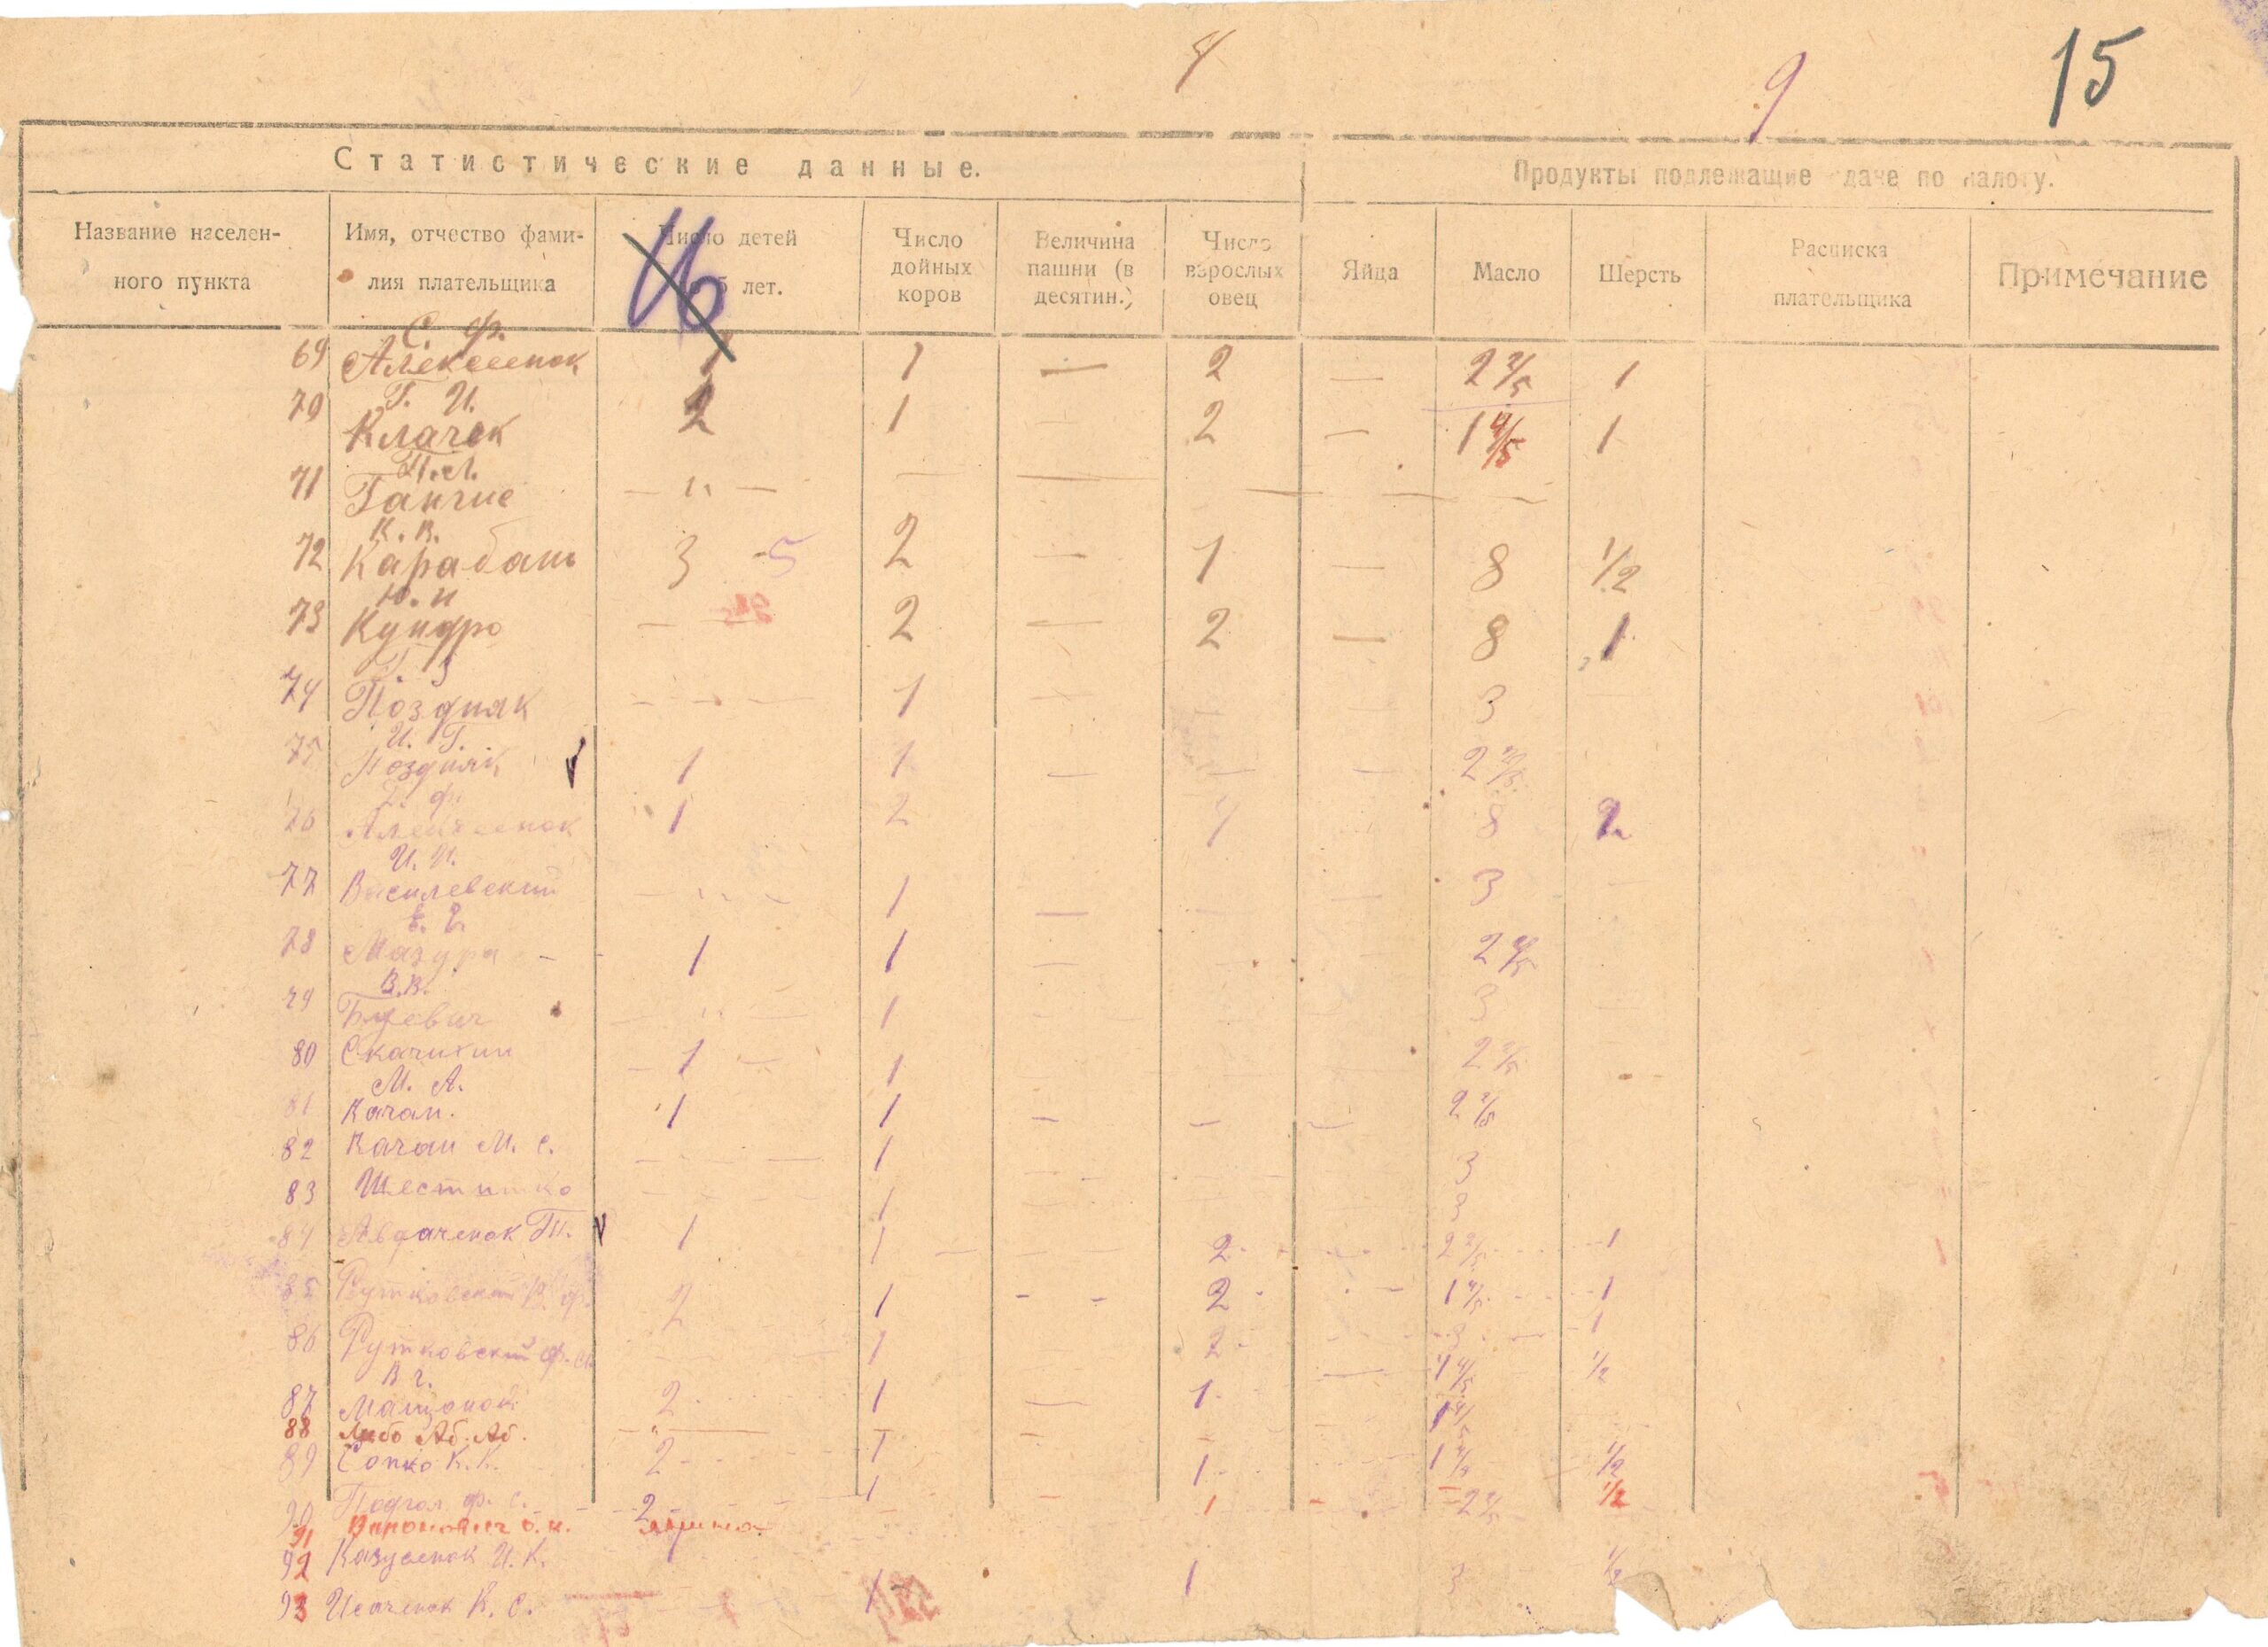 4 9 15
Статистические данные. Продукты подлежащие сдаче по налогу.
Название населен- Имя, отчество фами- Число детей Число Величина Число Яйца Масло Шерсть Расписка Примечание
ного пункта лия плательщика 5 лет. дойных пашни (в взрослых плательщика
коров десятин.) овец
С. Ф.
69 Алексеенок 1 1 — 2 — 2 2/5 1
Г. И.
70 Клачек 2 1 — 2 — 1 4/5 1
71 — " — — — — — —
К. В.
72 Карабань 3 - 5 2 — 1 — 8 1/2
Ю. И
73 Кундро — — 2 — 2 — 8 1
Г. З
74 Поздняк — — — 1 — — — 3 —
И. Г.
75 Поздняк V 1 1 — — — 2 2/5
Ф.
76 Алексеенок 1 2 4 8 2
И. И.
77 Василевский — " — 1 — — — 3 —
78 Мазура - - 1 1 — — 2 2/5
В. В.
79 — " — 1 — 3
80 1 — 1 — 2 2/5 -
М. А.
81 Качан. 1 1 — — — 2 2/5
82 Качан М. С. — — — 1 — — 3
83 Шеститко — — — 1 — — 3
84 Авдаченок V 1 1 — — 2 - 2 2/5 1
85 Рутковский Ф. 2 1 - - 2 - - - 1 4/5 1
86 Рутковский Ф. — — 1 — 2 - 3 1
В Г.
87 2 - 1 — 1 - — 1 4/5 1/2
88 Либо Аб. Аб. — " — 1 — — 1 4/5
89 Сопко К. К. 2 - 1 1 - 1 4/5 1/2
90 Ф. С. 2 — — 1 - — 2 2/5 1/2
91
92 Казусенок И. К.
93 Исаченок К. С. 1 1 3 1/2